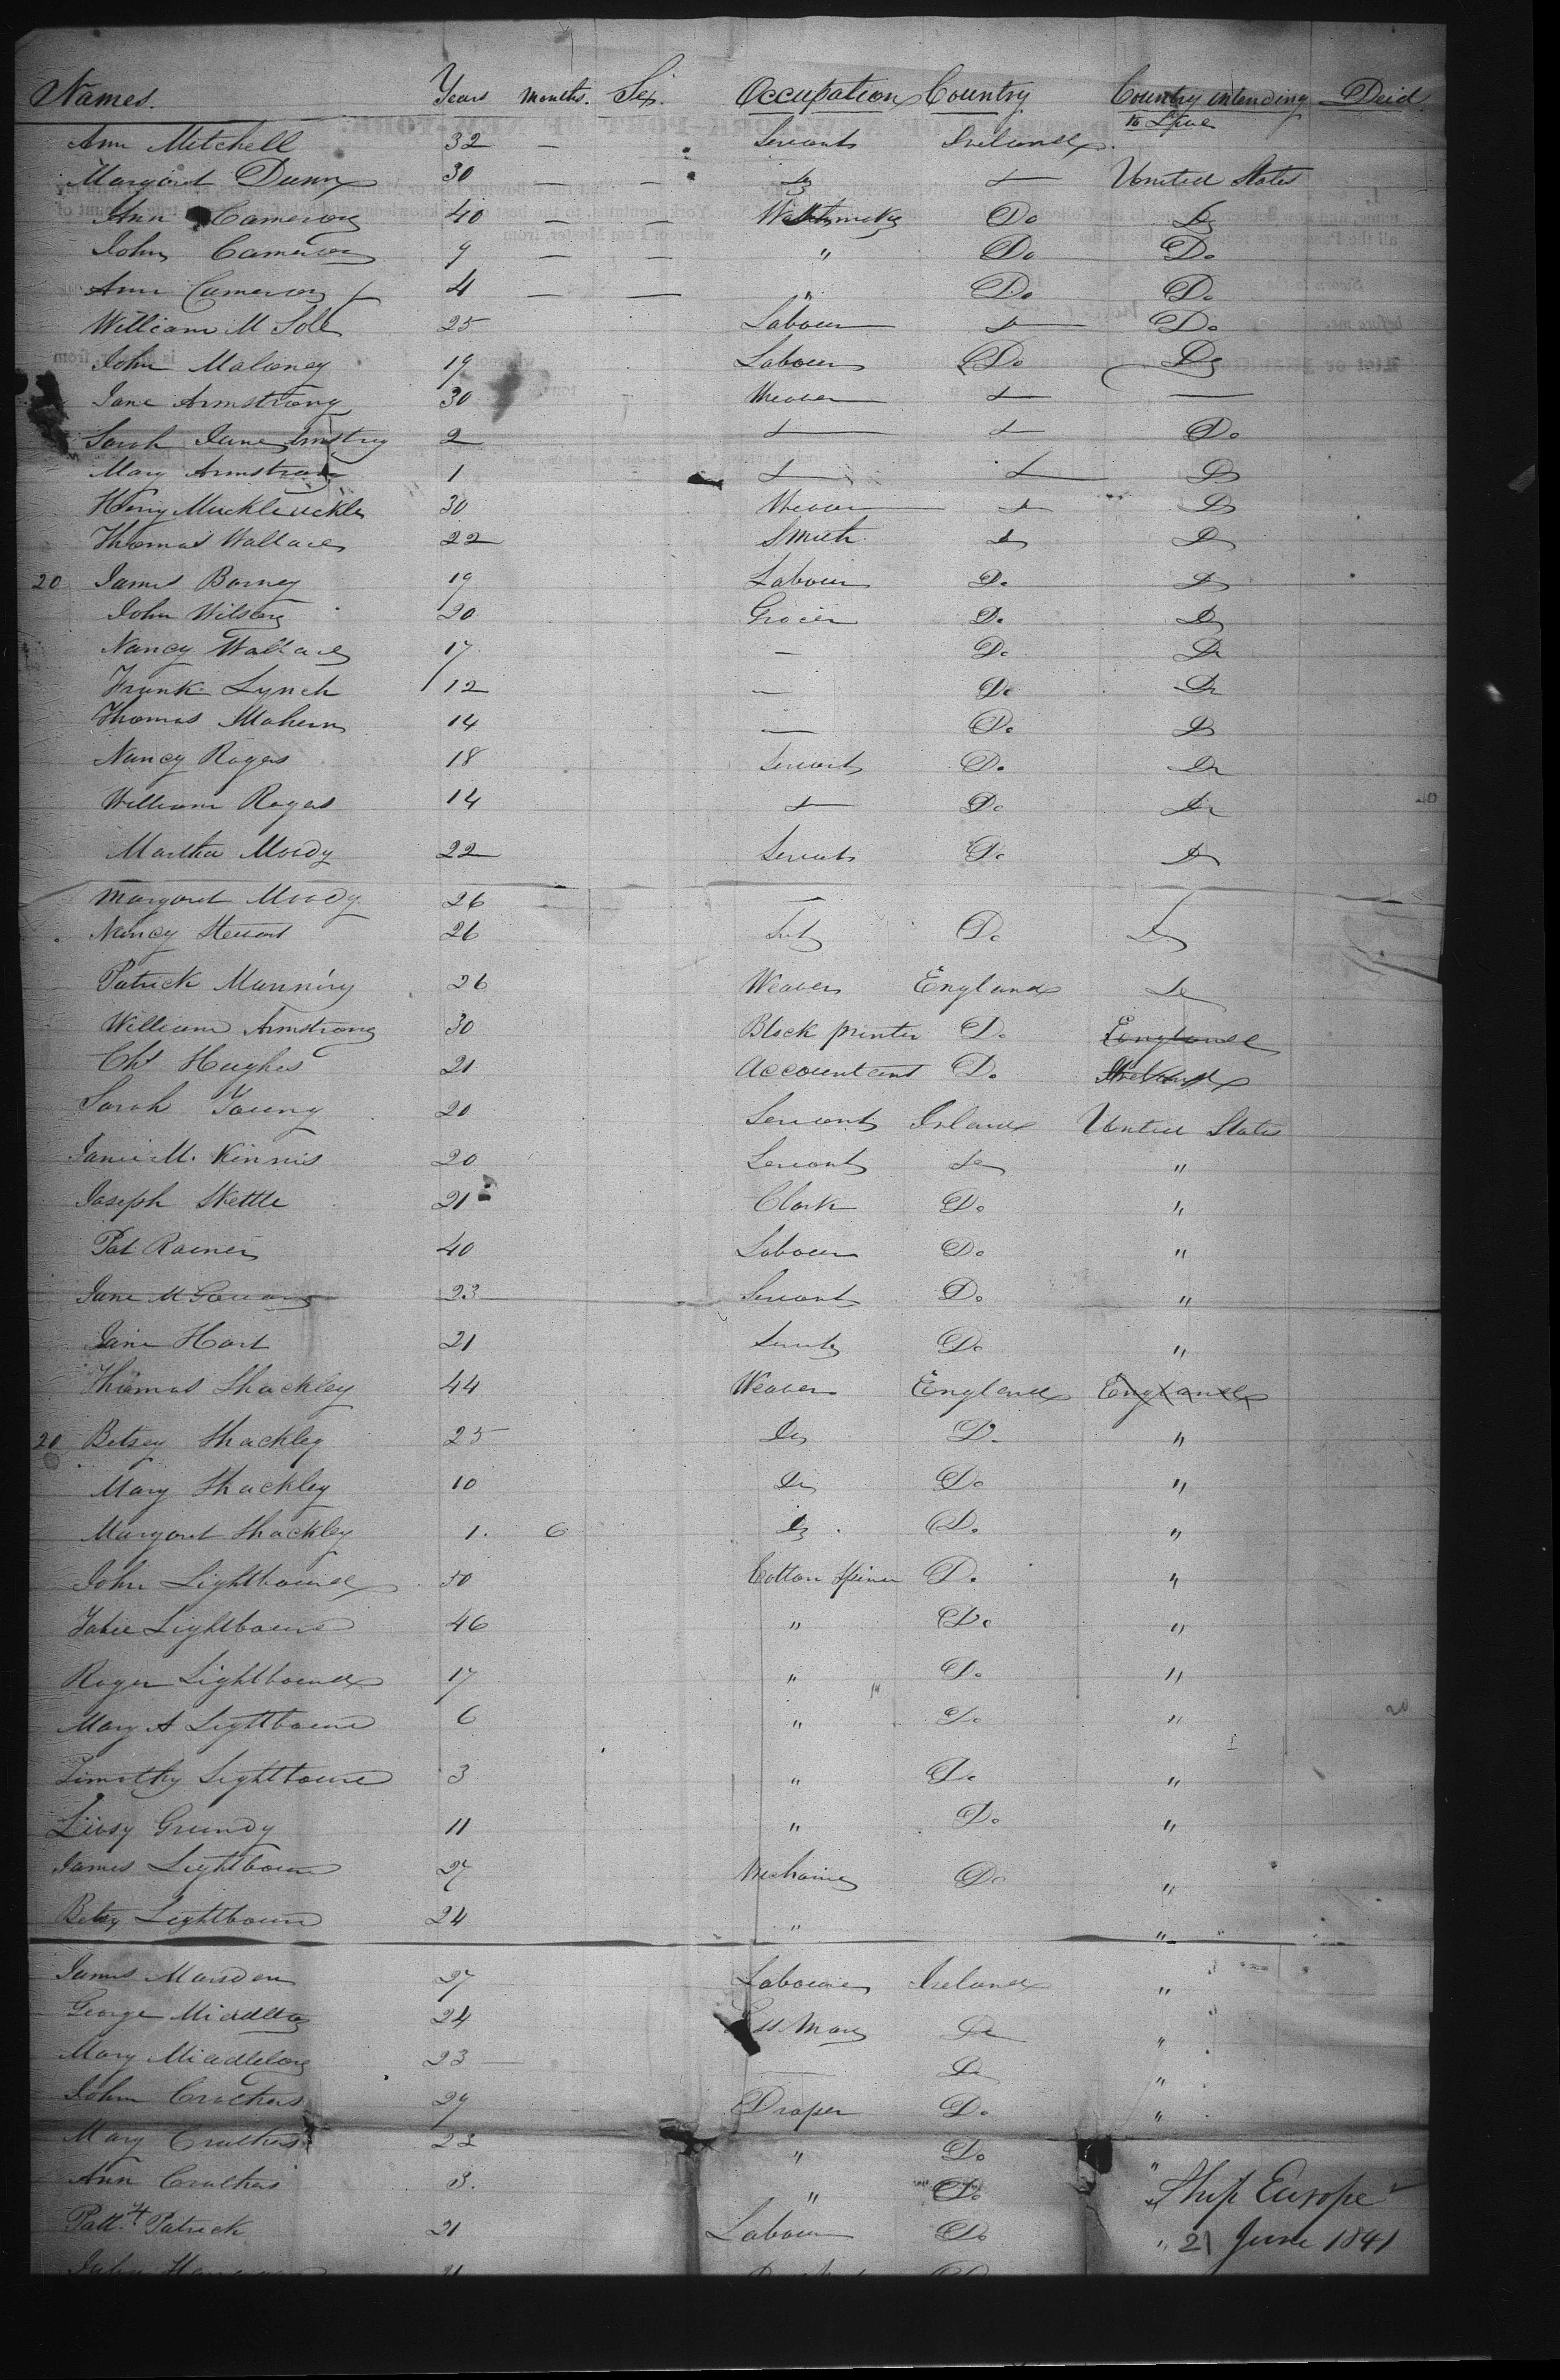 Names. Years months. Sex. Occupation Country Country intending Deid
to Live
Ann Mitchell 32 — Servant Ireland
Margaret Dunn 30 — — Do Do United States
Ann Cameron 40 — — Do Do
John Cameron 9 — — " Do Do
Ann Cameron 4 — — " Do Do
William M 25 Labour Do Do
John Maloney 19 Labour Do Do
Jane Armstrong 30 Weaver Do —
Sarah Jane Armstrong 2 Do Do Do
Mary Armstrong 1 Do Do Do
Henry 30 Weaver Do Do
Thomas Wallace 22 Smith Do Do
20 James Barney 19 Labour Do Do
John Wilson 20 Grocer Do Do
Nancy Wallace 17 — Do Do
Frank Lynch 12 — Do Do
Thomas Mahern 14 — Do Do
Nancy Rogers 18 Servant Do Do
William Rogers 14 Do Do Do
Martha Moody 22 Servant Do Do
Margaret Moody 26 —
Nancy Stewart 26 Do Do
Patrick Manning 26 Weaver England Do
William Armstrong 30 Block printer Do England
Chs Hughes 21 Accountant Do Ireland
Sarah Young 20 Servant Ireland United States
M. Kinnis 20 Servant Do "
Joseph Skettle 21 Clark Do "
Pat Rainer 40 Labour Do "
Jane McGowan 23 Servant Do "
Jane Hart 21 Servt Do "
Thomas Shackley 44 Weaver England England
20 Betsey Shackley 25 Do Do "
Mary Shackley 10 Do Do "
Margaret Shackley 1. 6 Do Do "
John Lightbound 50 Cotton Spiner Do "
Lightbown 46 " Do "
Roger Lightbound 17 " Do "
Mary A Lightbown 6 " Do "
Timothy Lightbown 3 " Do "
Grundy 11 " Do "
James Lightbown 27 Mechanic Do "
Betsy Lightbown 24 " "
James Marsden 27 Labourer Ireland "
George Middleton 24 Do "
Mary Middleton 23 — Do "
John Cruthers 29 Draper Do "
Mary Cruthers 22 " Do "
Ann Cruthers 3. " Do "
Patrick 21 Labour Do "
John 21
Ship Europe
21 June 1841